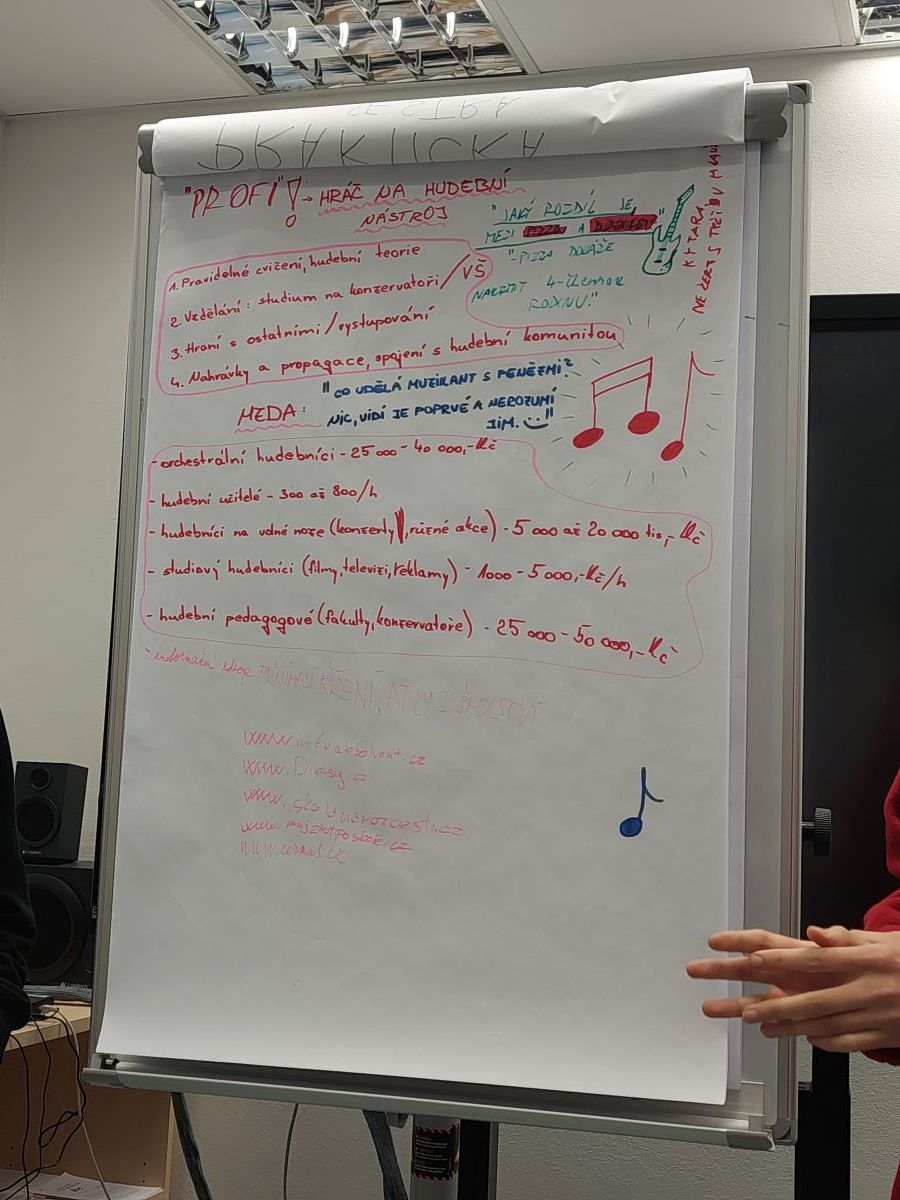 PRAKTICKÁ
"PROFI"! → HRÁČ NA HUDEBNÍ
NÁSTROJ
"JAKÝ ROZDÍL JE
MEZI PIZZOU A
"-PIZZA DOKÁŽE
NAKRMIT 4-ČLENNOU
RODINU."
KYTARA
NEČERT S TŘÍDY
1. Pravidelné cvičení, hudební teorie
2. Vzdělání: studium na konzervatoři/VŠ
3. Hraní s ostatními/vystupování
4. Nahrávky a propagace, spojení s hudební komunitou
MEDA:
"CO UDĚLÁ MUZIKANT S PENĚZMI?
NIC, VIDÍ JE POPRVÉ A NEROZUMÍ
JIM. "
- orchestrální hudebníci - 25 000 - 40 000,-Kč
- hudební učitelé - 300 až 800/h
- hudebníci na volné noze (koncerty, různé akce) - 5 000 až 20 000 tis,-Kč
- studiový hudebníci (filmy, televizi, reklamy) - 1000 - 5000,-Kč/h
- hudební pedagogové (fakulty, konzervatoře) - 25 000 - 50 000,-Kč
PŘIJÍMACÍ ŘÍZENÍ, ATLAS ŠKOLSTVÍ
www.infoabsolvent.cz
www.
www.
www.
www.cermat.cz